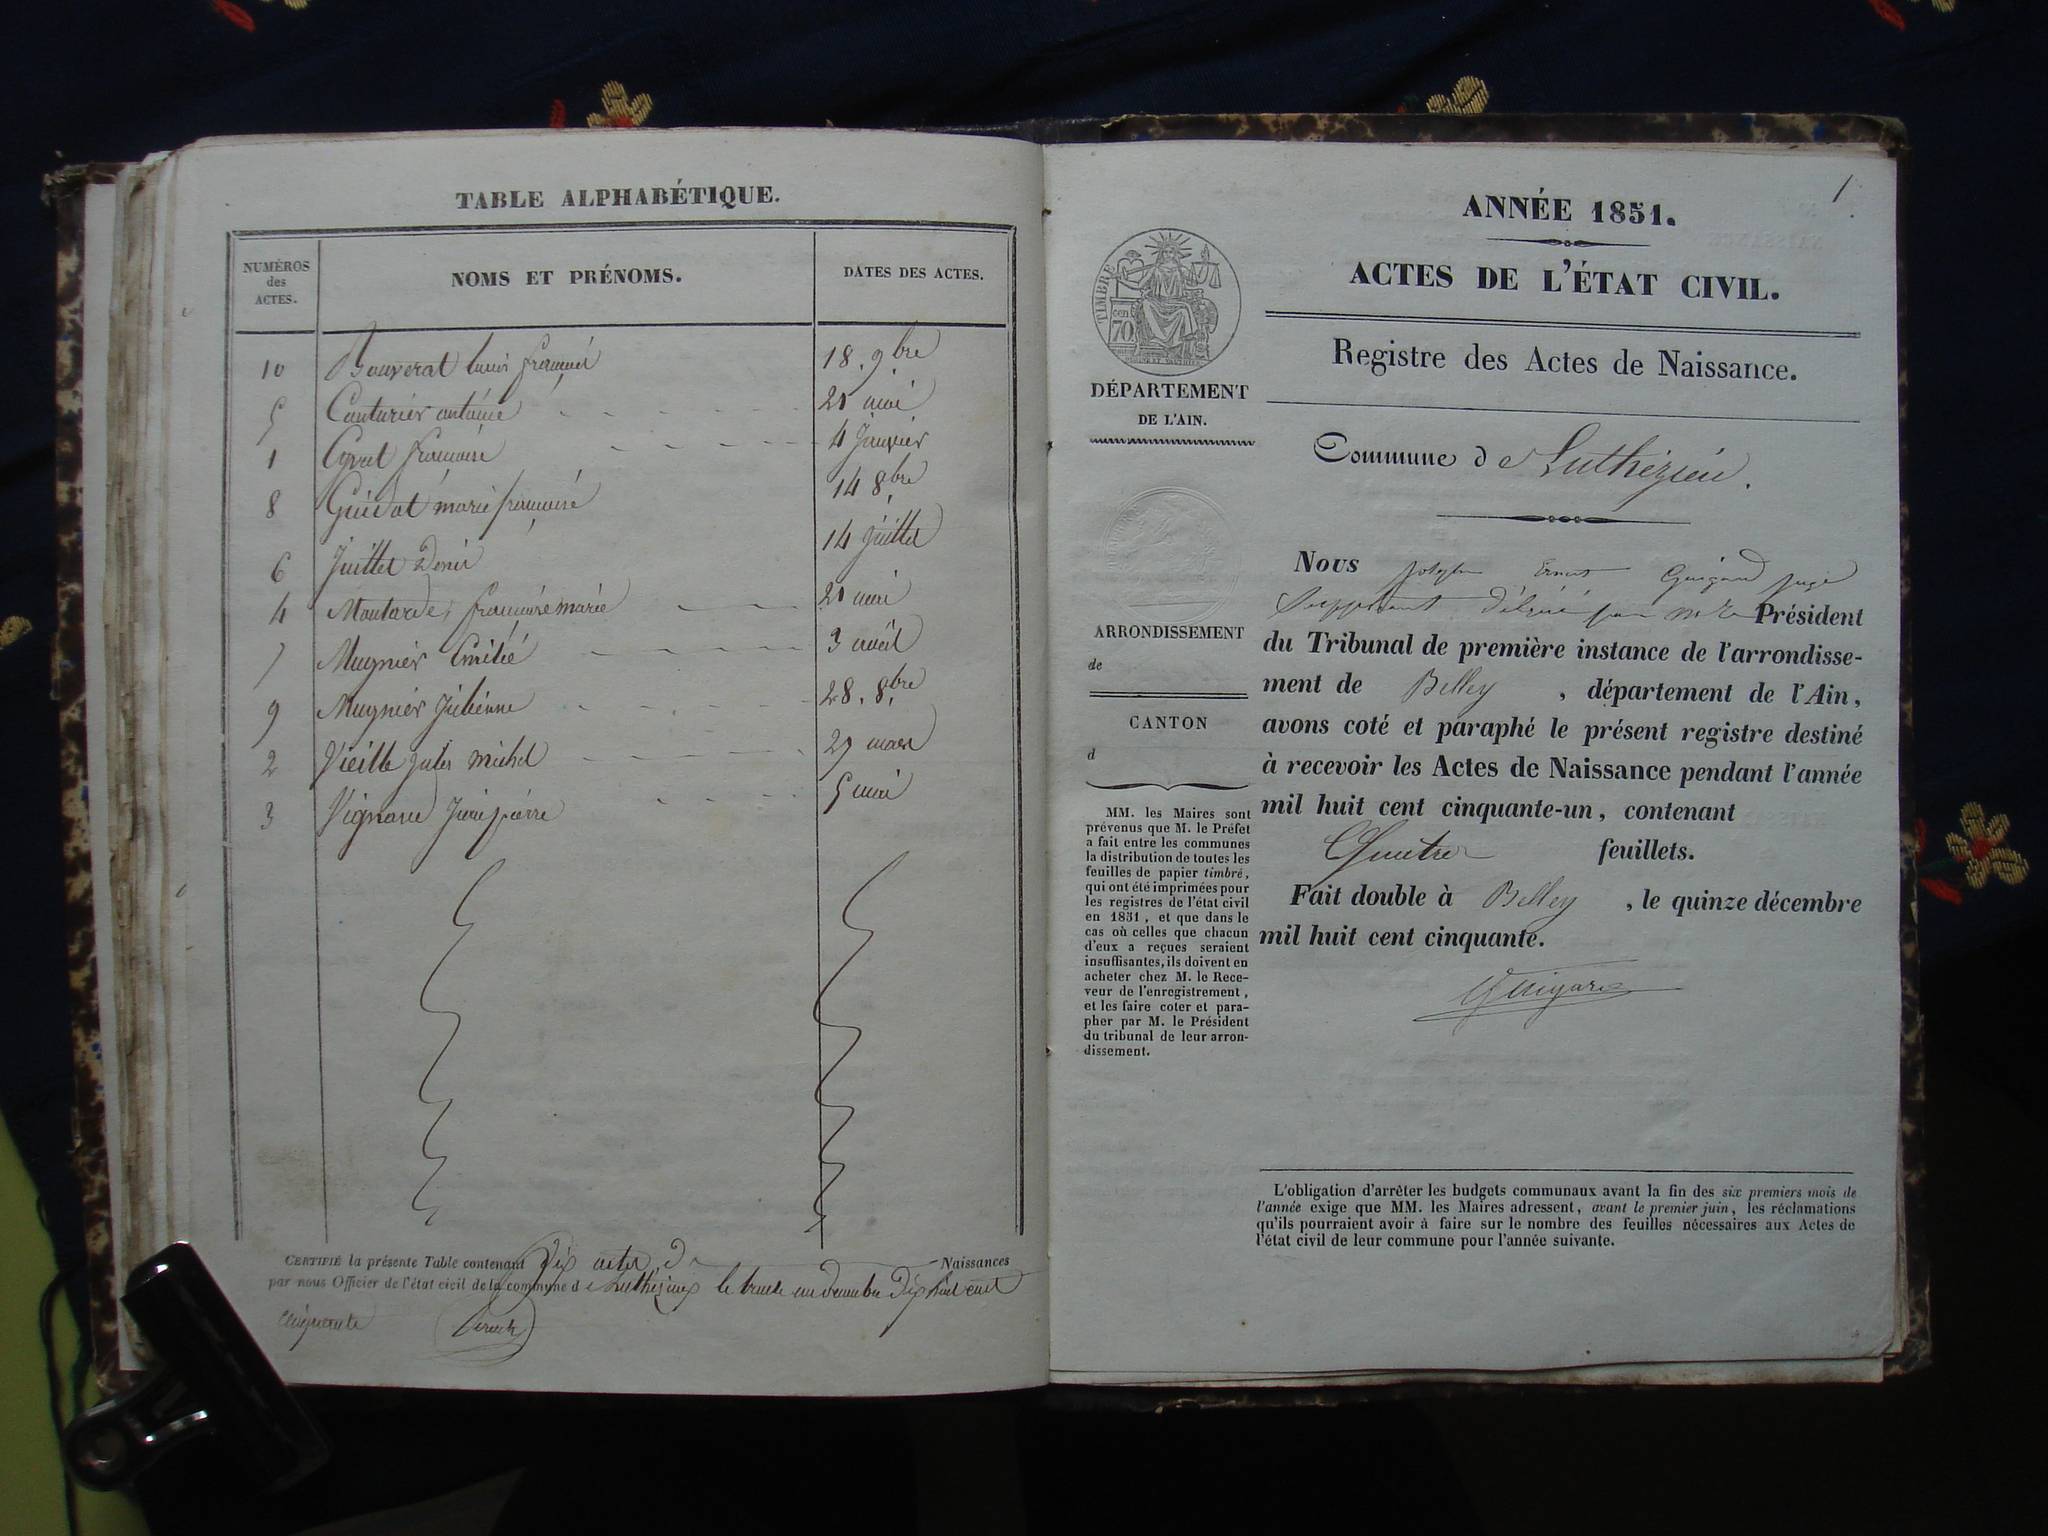 TABLE ALPHABÉTIQUE.
NUMÉROS
des
ACTES.
NOMS ET PRÉNOMS.
DATES DES ACTES.
10 Bouverat françois 18. 9bre
5 Couturier antoine 21 mai
1 Cyvet françoise 4 Janvier
8 Guidat marie françoise 14 8bre
6 Juillet Denis 14 Juillet
4 Moutarde, françoise marie 21 mai
7 Mugnier Emilie 3 août
9 Mugnier Julienne 28. 8bre
2 Vieille Jules Michel 29 mars
3 pierre 5 mai
CERTIFIÉ la présente Table contenant Dix actes de Naissances
par nous Officier de l'état civil de la commune de Luthézieu le trente un Décembre Dix huit cent
cinquante
1
ANNÉE 1851.
ACTES DE L'ÉTAT CIVIL.
Registre des Actes de Naissance.
TIMBRE
cen
70
DÉPARTEMENT
DE L'AIN.
Commune de Luthézieu.
ARRONDISSEMENT
de
CANTON
d
MM. les Maires sont
prévenus que M. le Préfet
a fait entre les communes
la distribution de toutes les
feuilles de papier timbré,
qui ont été imprimées pour
les registres de l'état civil
en 1851, et que dans le
cas où celles que chacun
d'eux a reçues seraient
insuffisantes, ils doivent en
acheter chez M. le Rece-
veur de l'enregistrement,
et les faire coter et para-
pher par M. le Président
du tribunal de leur arron-
dissement.
Nous Ernest Guigard juge
Suppléant Délégué par Mr le Président
du Tribunal de première instance de l'arrondisse-
ment de Belley, département de l'Ain,
avons coté et paraphé le présent registre destiné
à recevoir les Actes de Naissance pendant l'année
mil huit cent cinquante-un, contenant
Quatre feuillets.
Fait double à Belley, le quinze décembre
mil huit cent cinquante.
Guigard
L'obligation d'arrêter les budgets communaux avant la fin des six premiers mois de
l'année exige que MM. les Maires adressent, avant le premier juin, les réclamations
qu'ils pourraient avoir à faire sur le nombre des feuilles nécessaires aux Actes de
l'état civil de leur commune pour l'année suivante.